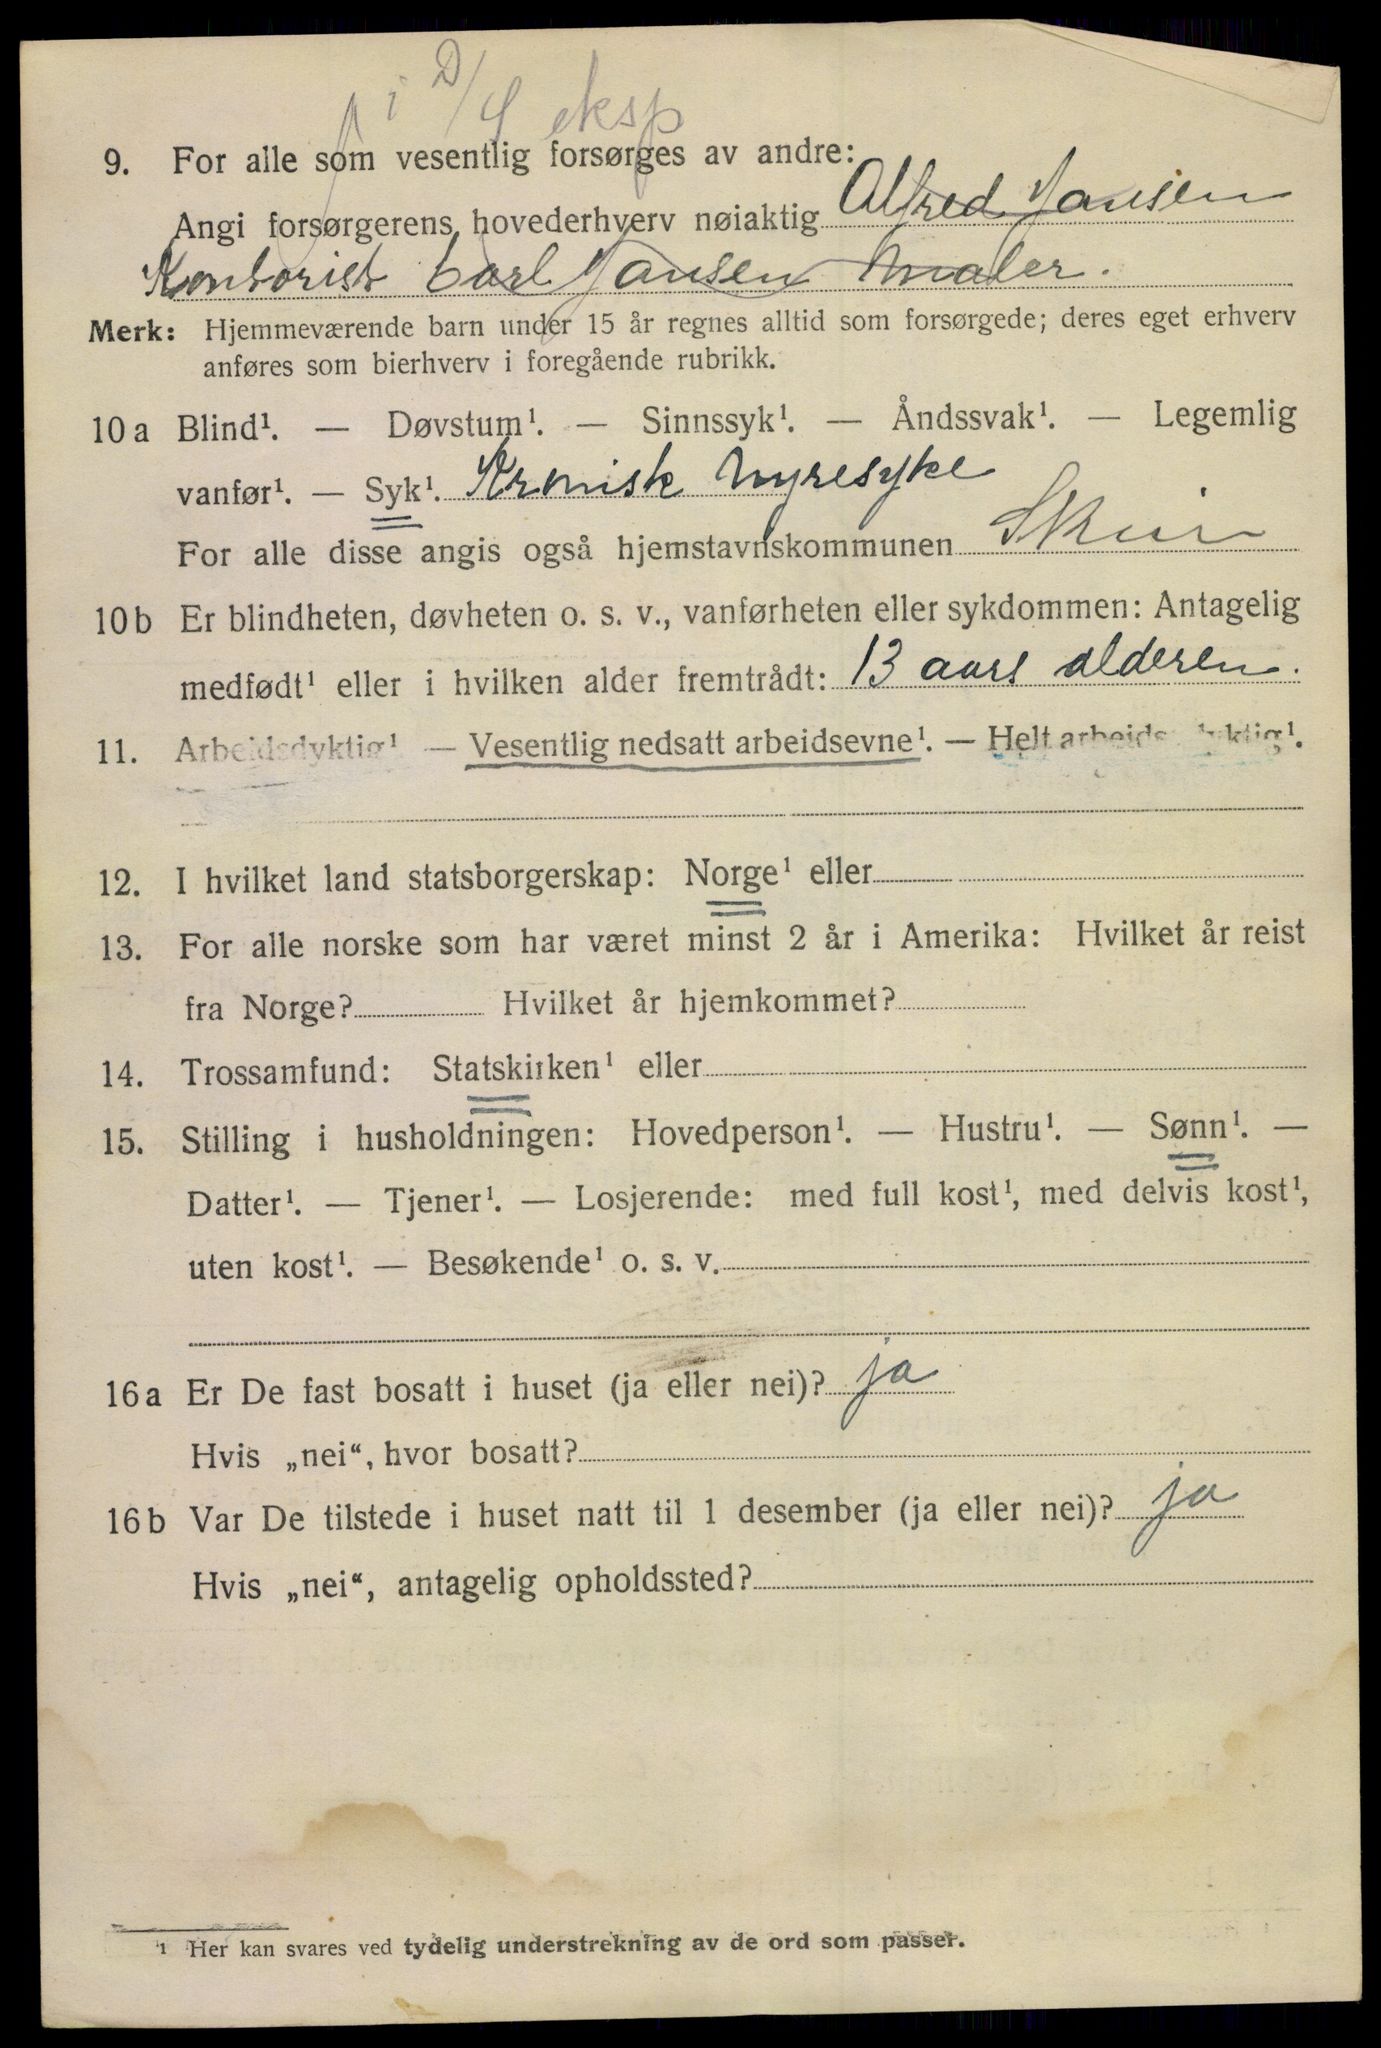 i D/S eksp
9. For alle som vesentlig forsørges av andre:
Angi forsørgerens hovederhverv nøiaktig Alfred Jansen
Kontorist Carl Jansen Maler.
Merk: Hjemmeværende barn under 15 år regnes alltid som forsørgede; deres eget erhverv
anføres som bierhverv i foregående rubrikk.
10 a Blind¹. — Døvstum¹. — Sinnssyk¹. — Åndssvak¹. — Legemlig
vanfør¹. — Syk¹. Kronisk Nyresyke
For alle disse angis også hjemstavnskommunen
10 b Er blindheten, døvheten o. s. v., vanførheten eller sykdommen: Antagelig
medfødt¹ eller i hvilken alder fremtrådt: 13 aars alderen.
11. Arbeidsdyktig¹ — Vesentlig nedsatt arbeidsevne¹. — Helt arbeidsudyktig¹.
12. I hvilket land statsborgerskap: Norge¹ eller
13. For alle norske som har været minst 2 år i Amerika: Hvilket år reist
fra Norge? Hvilket år hjemkommet?
14. Trossamfund: Statskirken¹ eller
15. Stilling i husholdningen: Hovedperson¹. — Hustru¹. — Sønn¹. —
Datter¹. — Tjener¹. — Losjerende: med full kost¹, med delvis kost¹,
uten kost¹. — Besøkende¹ o. s. v.
16 a Er De fast bosatt i huset (ja eller nei)? ja
Hvis „nei“, hvor bosatt?
16 b Var De tilstede i huset natt til 1 desember (ja eller nei)? ja
Hvis „nei“, antagelig opholdssted?
¹ Her kan svares ved tydelig understrekning av de ord som passer.